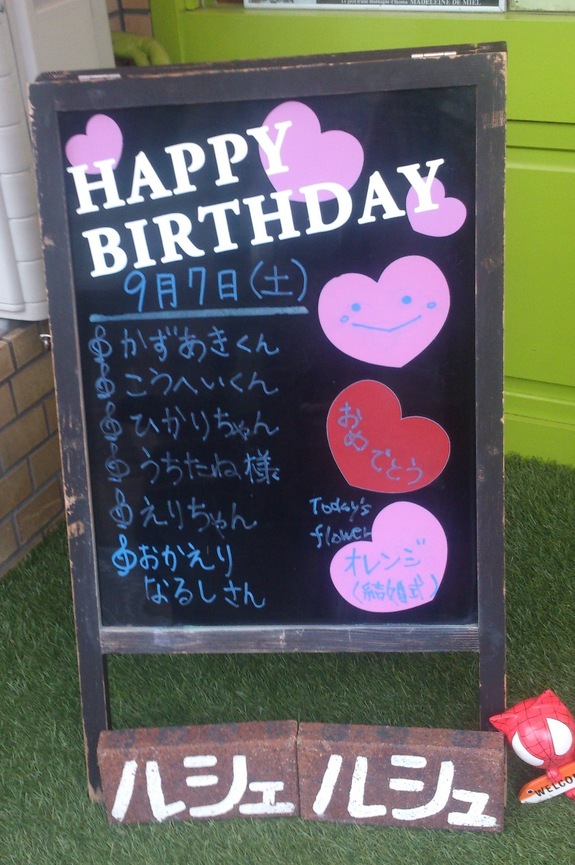 HAPPY
BIRTHDAY
9月7日(土)
かずあきくん
こうへいくん
ひかりちゃん
うちだね様
えりちゃん
おかえり
なるしさん
おめ
でとう
Today's
flower
オレンジ
(結婚式)
ルシェ ルシュ
WELCO